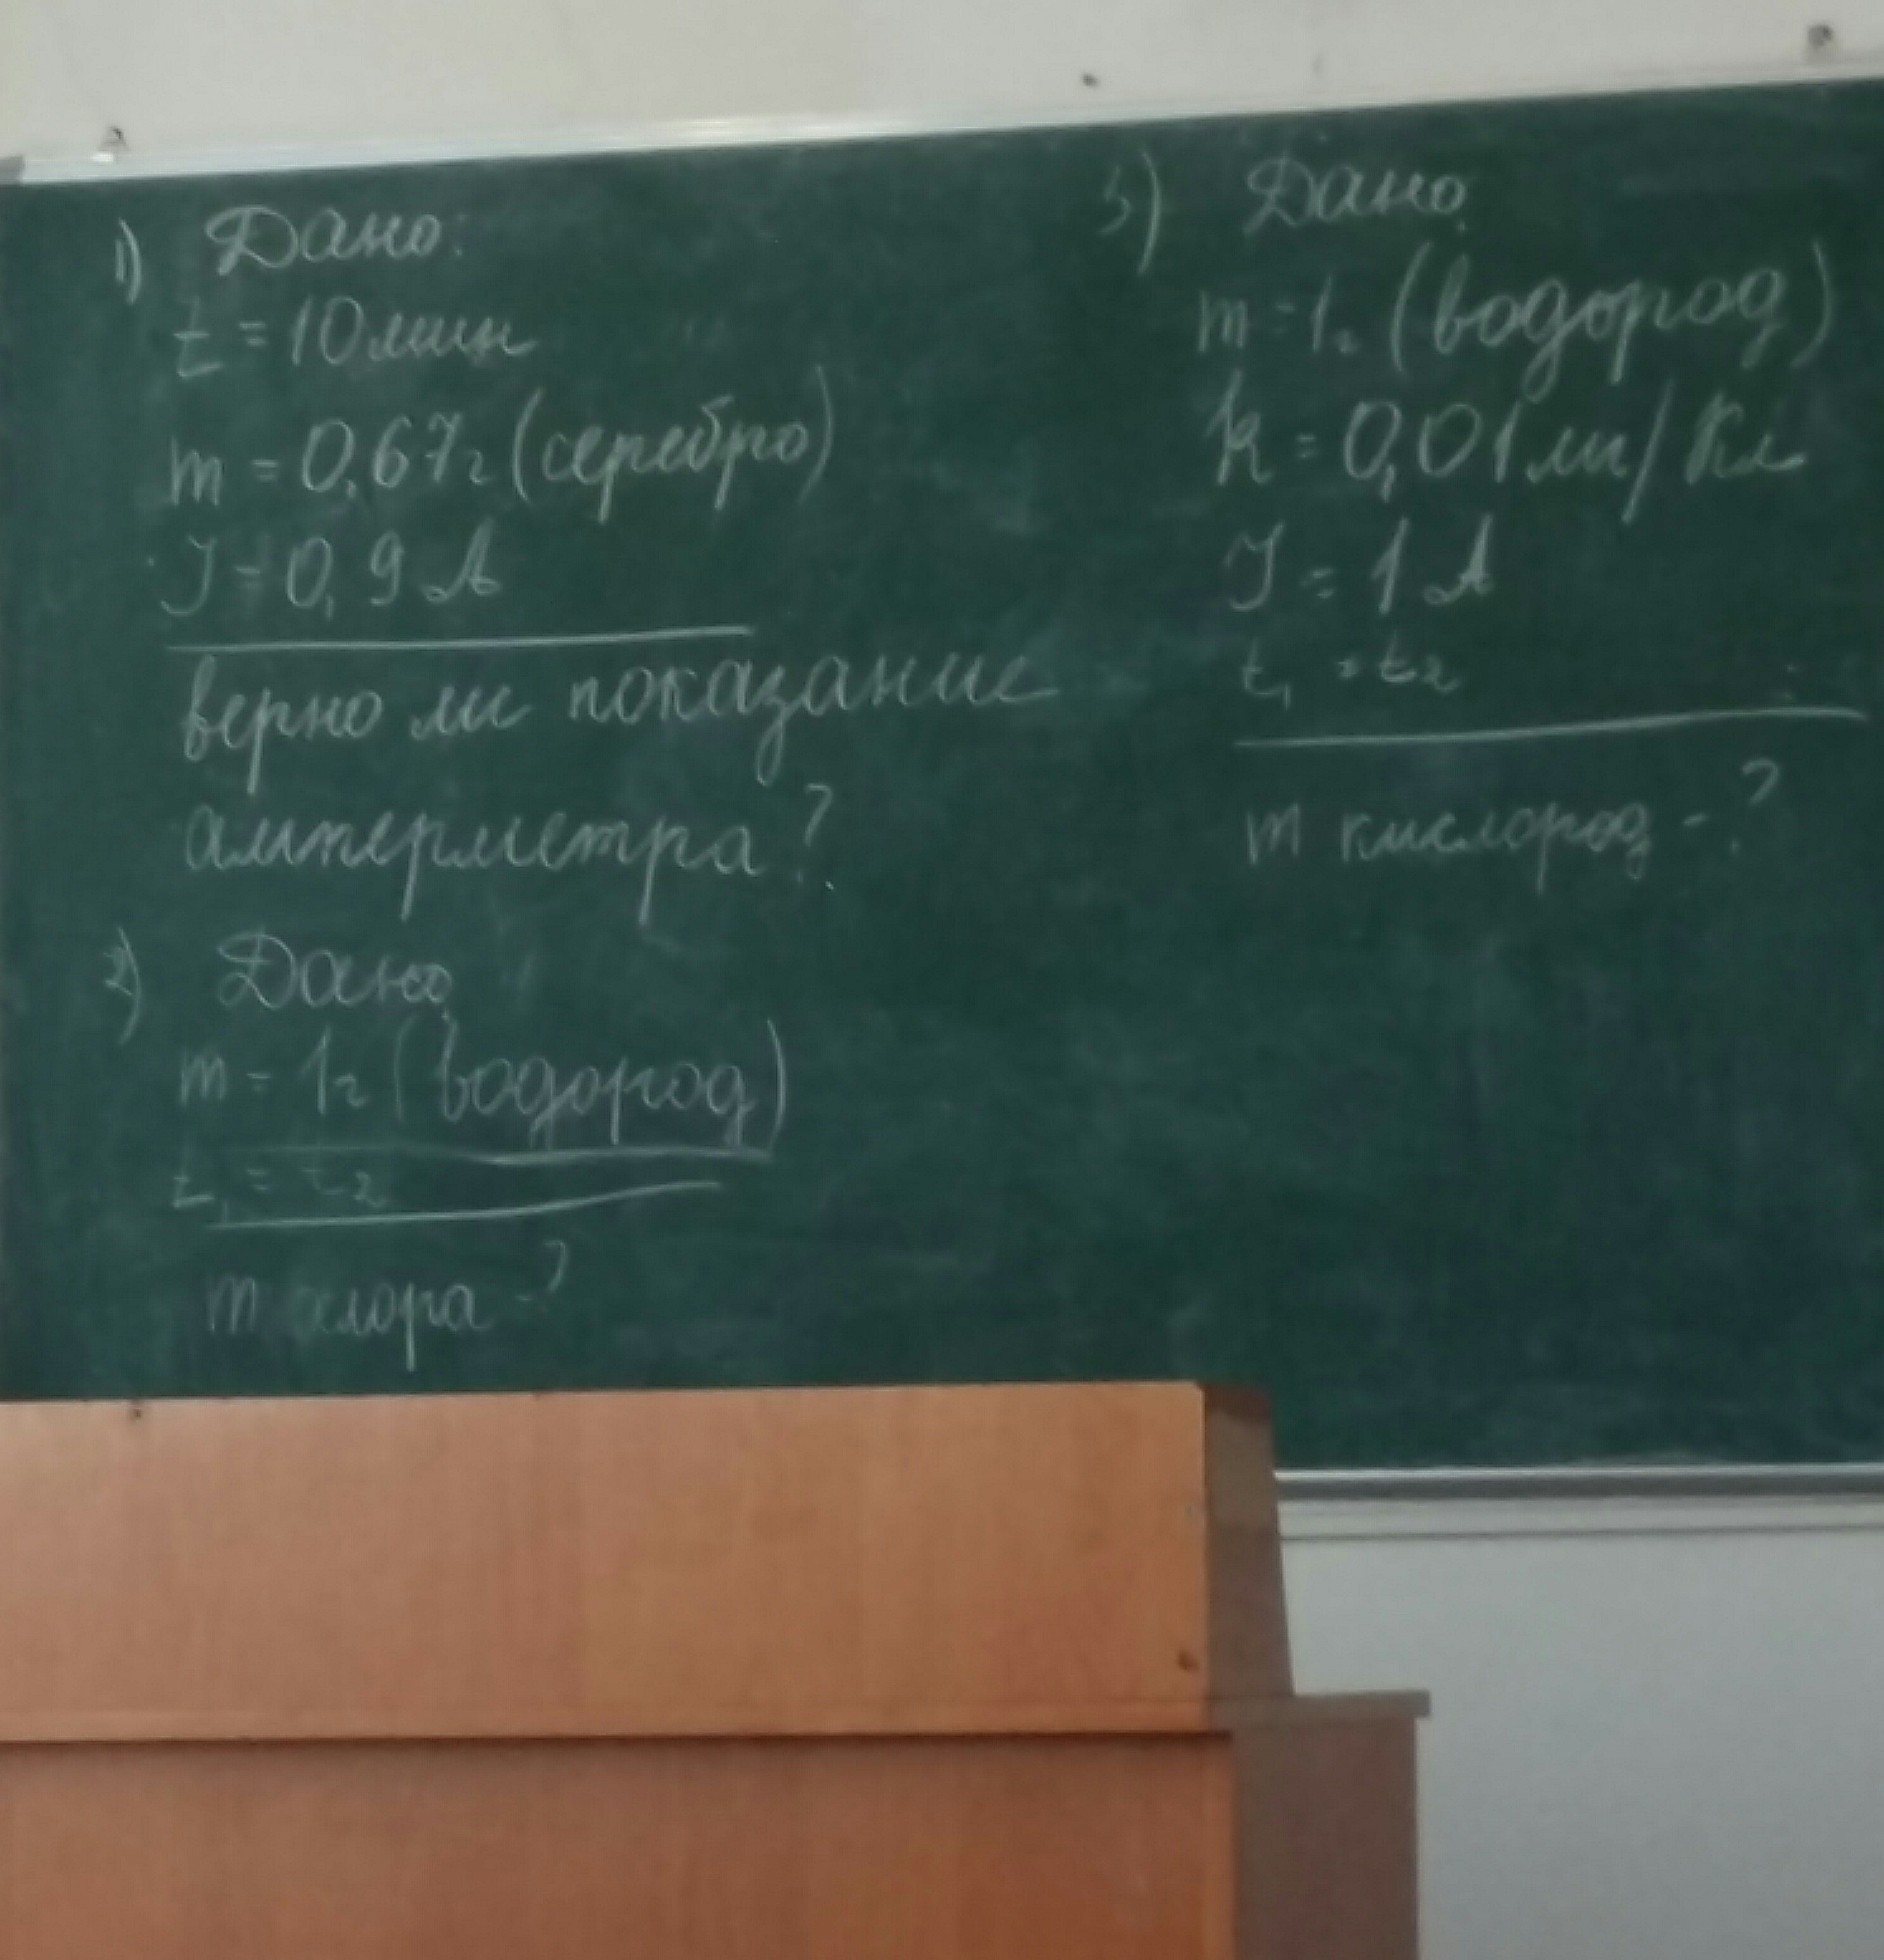 1) Дано:
t = 10 мин
m = 0,67 г (серебро)
I = 0,9 А
верно ли показание
амперметра?
2) Дано
m = 1 г (водород)
t₁ = t₂
m хлора - ?
3) Дано
m = 1 г (водород)
k = 0,01 мг/Кл
I = 1 А
t₁ = t₂
m кислород - ?